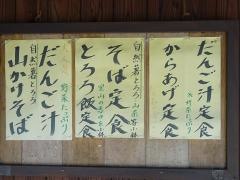 だんご汁定食
※野菜たっぷり
からあげ定食
そば定食
自然薯とろろ
とろろ飯定食
だんご汁
野菜たっぷり
山かけそば
自然薯とろろ